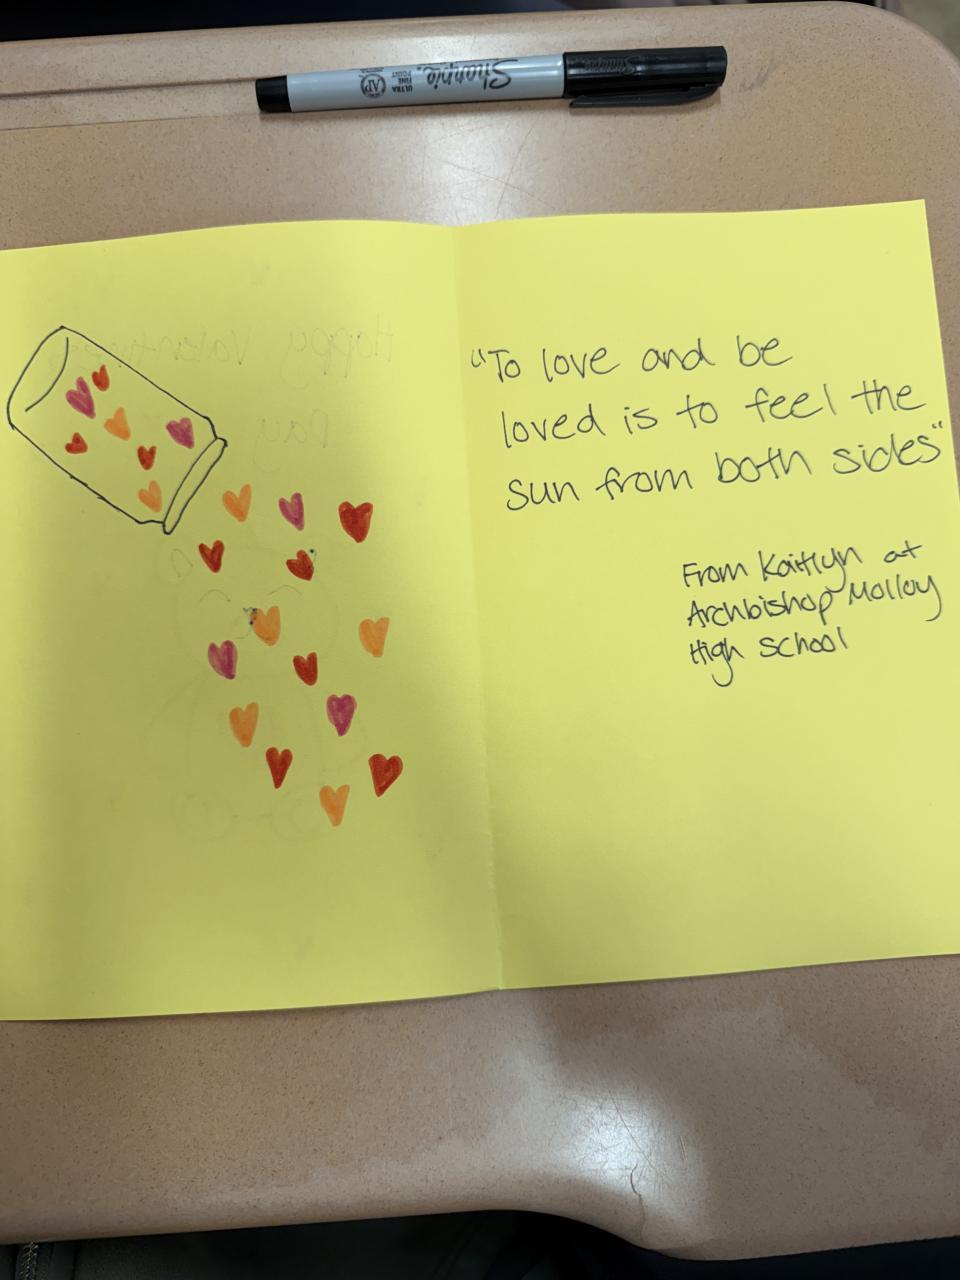 Sharpie.
ULTRA
FINE
POINT
AP
Happy Valentines
Day
"To love and be
loved is to feel the
sun from both sides"
From Kaitlyn at
Archbishop Molloy
High School